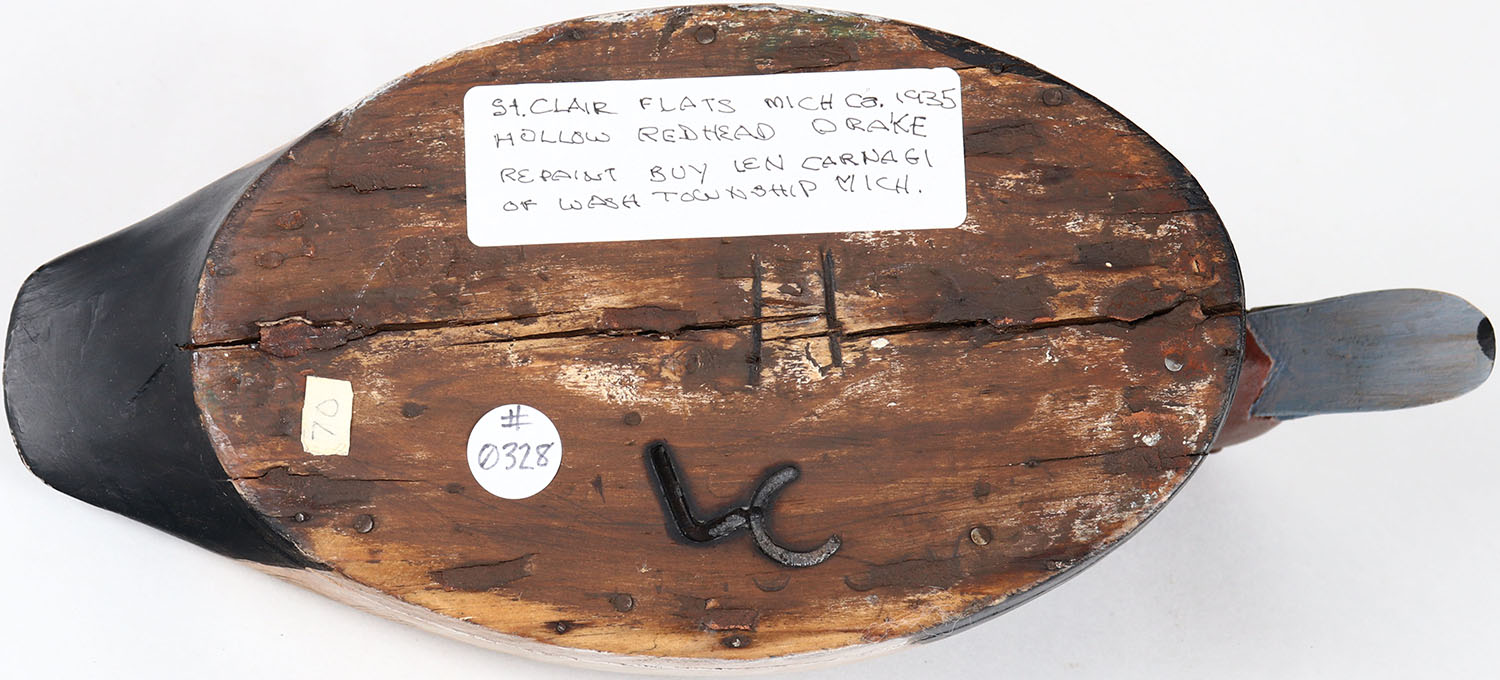 St. CLAIR FLATS MICH Ca. 1935
HOLLOW REDHEAD DRAKE
REPAINT BUY LEN CARNAGI
OF WASH TOWNSHIP MICH.
H
70
#
0328
LC